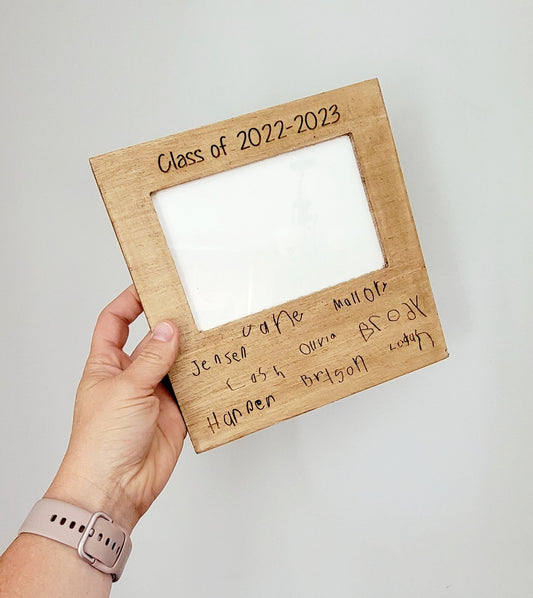 Class of 2022-2023
Jensen Jane Mallory
Cash Olivia Brody
Harper Brison Logan